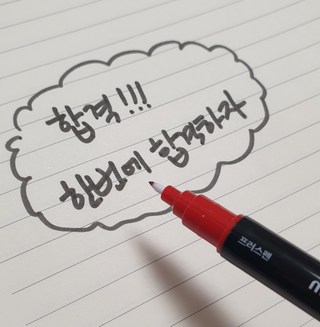 합격!!!
한번에 합격하자
프러스펜